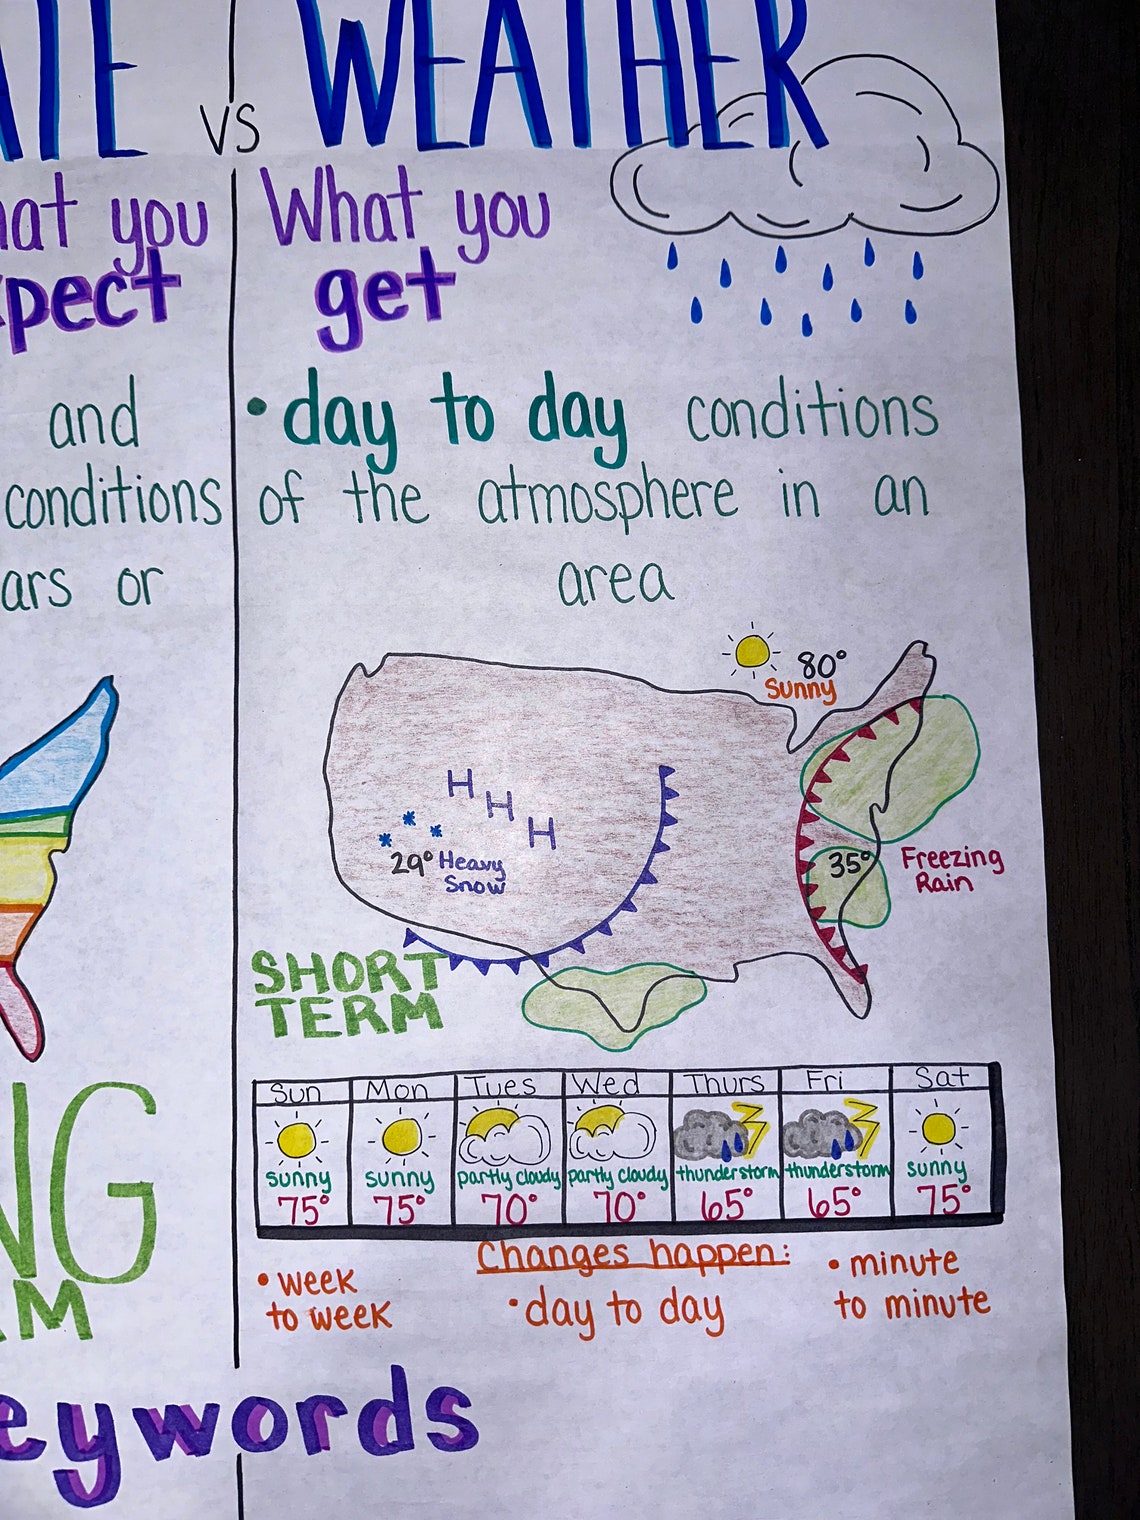 ATE vs WEATHER
hat you
xpect
and
conditions
ars or
NG
M
What you
get
• day to day conditions
of the atmosphere in an
area
80°
Sunny
H
H
H
29° Heavy
Snow
35°
Freezing
Rain
SHORT
TERM
Sun Mon Tues Wed Thurs Fri Sat
sunny sunny partly cloudy partly cloudy thunderstorm thunderstorm sunny
75° 75° 70° 70° 65° 65° 75°
Changes happen:
• week
to week
• day to day
• minute
to minute
eywords